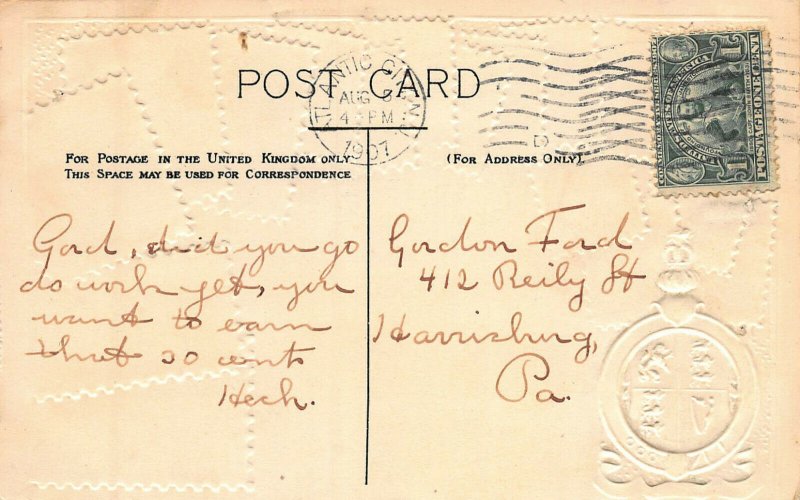 POST CARD
ATLANTIC CITY, N.J.
AUG
PM
1907
POSTAGE ONE CENT
1 1
FOR POSTAGE IN THE UNITED KINGDOM ONLY
THIS SPACE MAY BE USED FOR CORRESPONDENCE
(FOR ADDRESS ONLY)
Gord, did you go
do work yet, you
want to earn
thret 30 cents
Hech.
Gordon Ford
412 Reily St
Harrisburg,
Pa.